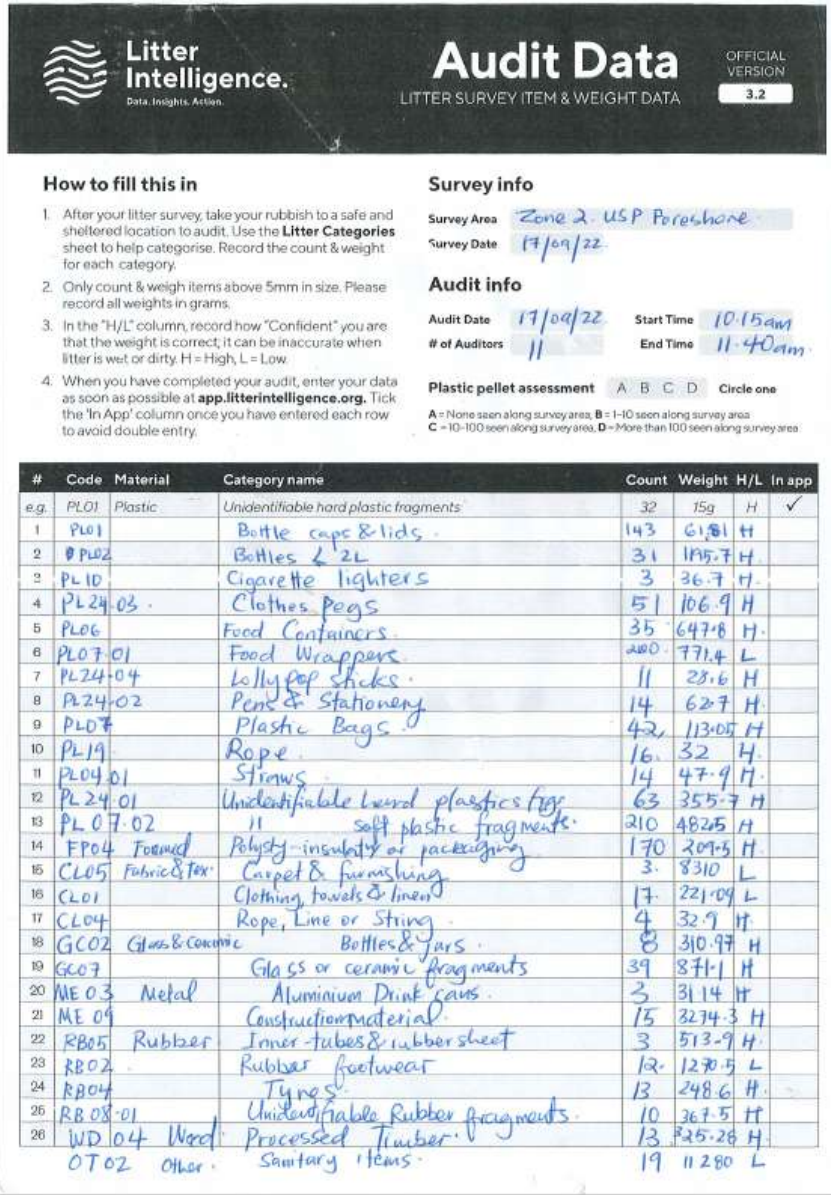 Litter
Intelligence.
Data. Insights. Action.
Audit Data
LITTER SURVEY ITEM & WEIGHT DATA
OFFICIAL
VERSION
3.2
How to fill this in
1. After your litter survey, take your rubbish to a safe and
sheltered location to audit. Use the Litter Categories
sheet to help categorise. Record the count & weight
for each category.
2. Only count & weigh items above 5mm in size. Please
record all weights in grams.
3. In the "H/L" column, record how "Confident" you are
that the weight is correct; it can be inaccurate when
litter is wet or dirty. H = High, L = Low.
4. When you have completed your audit, enter your data
as soon as possible at app.litterintelligence.org. Tick
the 'In App' column once you have entered each row
to avoid double entry.
Survey info
Survey Area Zone 2. USP Foreshore.
Survey Date 17/09/22
Audit info
Audit Date 17/09/22 Start Time 10.15am
# of Auditors 11 End Time 11.40am.
Plastic pellet assessment A B C D Circle one
A = None seen along survey area, B = 1-10 seen along survey area
C = 10-100 seen along survey area, D = More than 100 seen along survey area
# Code Material Category name Count Weight H/L In app
e.g. PL01 Plastic Unidentifiable hard plastic fragments 32 15g H ✓
1 PL01 Bottle caps & lids. 143 H
2 PL02 Bottles < 2L 31 H.
3 PL10 Cigarette lighters 3 36.7 H.
4 PL24-03. Clothes pegs 51 106.9 H
5 PL06 Food Containers. 35 647.8 H.
6 PL07-01 Food Wrappers. 200. 771.4 L
7 PL24-04 Lollypop sticks. 11 28.6 H
8 PL24-02 Pens & Stationery 14 62.7 H.
9 PL07 Plastic Bags. 42, 113.05 H
10 PL19 Rope. 16. 32 H.
11 PL04.01 Straws. 14 47.9 H.
12 PL24.01 Unidentifiable hard plastics frgs 63 355.7 H
13 PL07.02 " soft plastic fragments. 210 482.5 H
14 FP04 Foamed Polysty-insulatn or packaging 170 209.5 H.
15 CL05 Fabric & tex. Carpet & furnishing 3. 8310 L
16 CL01 Clothing, towels & linen 17. 221.09 L
17 CL04 Rope, Line or String. 4 32.9 H.
18 GC02 Glass & Ceramic Bottles & Jars. 8 310.97 H
19 GC07 Glass or ceramic fragments 39 871.1 H
20 ME03 Metal Aluminium Drink cans. 3 H
21 ME09 Construction material. 15 3274.3 H
22 RB05 Rubber Inner-tubes & rubber sheet 3 513.9 H.
23 RB02. Rubber footwear 12. 1270.5 L
24 RB04 Tyres. 13 248.6 H.
25 RB08-01 Unidentifiable Rubber fragments. 10 367.5 H
26 WD04 Wood. Processed Timber. 13 325.28 H.
OT02 Other. Sanitary items. 19 11280 L